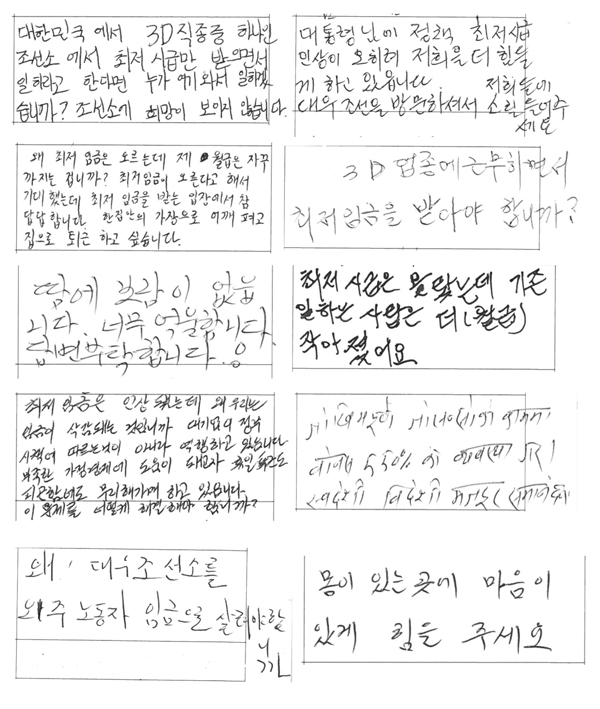 대한민국에서 3D직종중 하나인
조선소에서 최저시급만 받으면서
일하라고 한다면 누가 여기와서 일하겠
습니까? 조선소에 희망이 보이지 않습니다.
대통령님이 정책 최저시급
인상이 오히려 저희을 더 힘들
게 하고 있읍니다. 저희들에
대우조선을 방문하셔서 소릴 들어주
세요
왜 최저 임금은 오르는데 제 월급은 자꾸
까지는 겁니까? 최저임금이 오른다고 해서
기대했는데 최저 임금을 받는 입장에서 참
답답합니다. 한집안의 가장으로 어깨 펴고
집으로 퇴근 하고 싶습니다.
3D 업종에 근무하면서
최저임금을 받아야 합니까?
땀에 보람이 없습
니다. 너무 억울합니다.
답변부탁합니다.
최저 시급은 올랐는데 기존
일하는 사람은 더(월급)
작아졌어요
최저 임금은 인상 됐는데 왜 우리는
임금이 삭감돼는 것입니까 대기업이 정부
시책에 따르는것이 아니라 역행하고 있습니다
부족한 가정경제에 도움이 돼고자
무리해가며 하고 있습니다.
이 문제를 어떻게 해결해야 합니까?
550% को
स्वदेशी विदेशी मजदुर
왜, 대우조선소를
외주 노동자 임금으로 살려야 합
니까
몸이 있는 곳에 마음이
있게 힘을 주세요